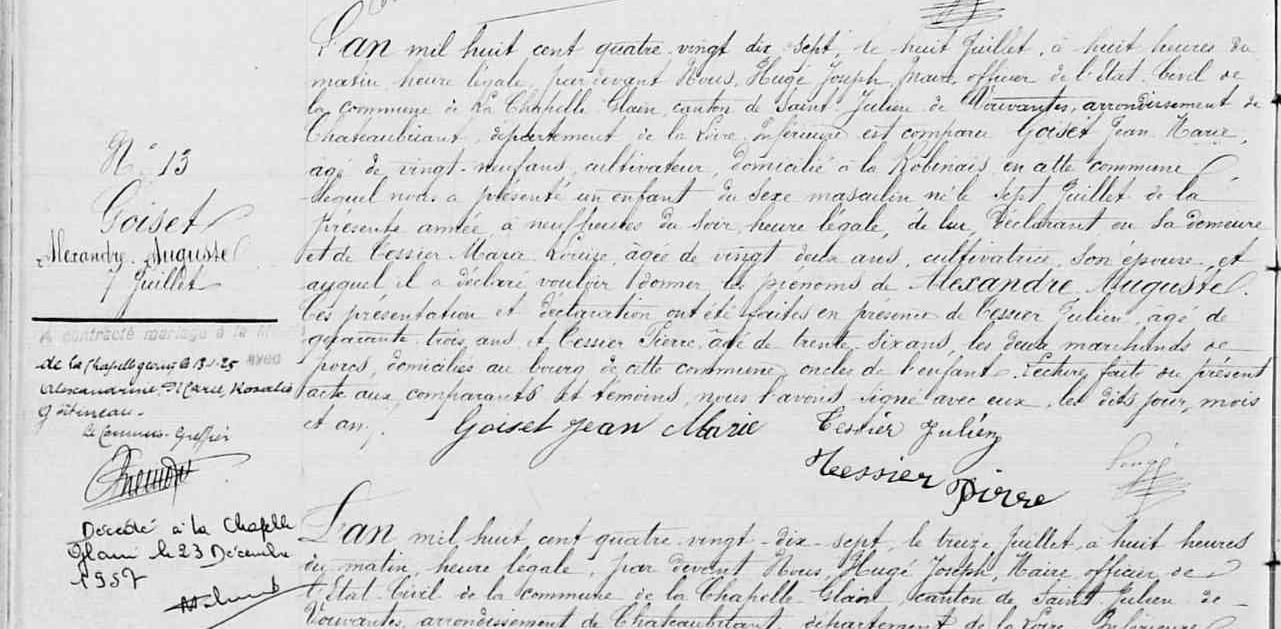 N° 13
Goiset
Alexandre Auguste
7 Juillet
A contracté mariage à la
de la Chapelle 13-1-25 avec
Alexandrine Marie Rosalie
Gâtineau.
Le Commis-Greffier
Décédé à la Chapelle
Glain le 23 Décembre
1957
L'an mil huit cent quatre vingt dix sept, le huit Juillet, à huit heures du
matin, heure légale, par devant Nous, Hugé Joseph, Maire, officier de l'Etat Civil de
la commune de La Chapelle Glain, canton de Saint Julien de Vouvantes, arrondissement de
Chateaubriant, département de la Loire Inférieure est comparu Goiset Jean Marie,
âgé de vingt-neuf ans, cultivateur, domicilié à la Robinais en cette commune
lequel nous a présenté un enfant du sexe masculin né le sept Juillet de la
présente année à neuf heures du soir, heure légale, de lui, Déclarant en sa demeure
et de Tessier Marie Louise, âgée de vingt deux ans, cultivatrice, son épouse, et
auquel il a déclaré vouloir donner les prénoms de Alexandre Auguste.
Ces présentation et déclaration ont été faites en présence de Tessier Julien, âgé de
quarante trois ans et Tessier Pierre, âgé de trente-six ans, les deux marchands de
porcs, domiciliés au bourg de cette commune, oncles de l'enfant. Lecture faite du présent
acte aux comparants et témoins, nous l'avons signé avec eux, les dits jour, mois
et an.
Goiset Jean Marie Tessier Julien
Tessier Pierre
Hugé
L'an mil huit cent quatre-vingt-dix-sept, le treize Juillet, à huit heures
du matin, heure légale, par devant Nous, Hugé Joseph, Maire officier de
l'Etat Civil de la commune de la Chapelle Glain, canton de Saint Julien de
Vouvantes, arrondissement de Chateaubriant, département de la Loire Inférieure